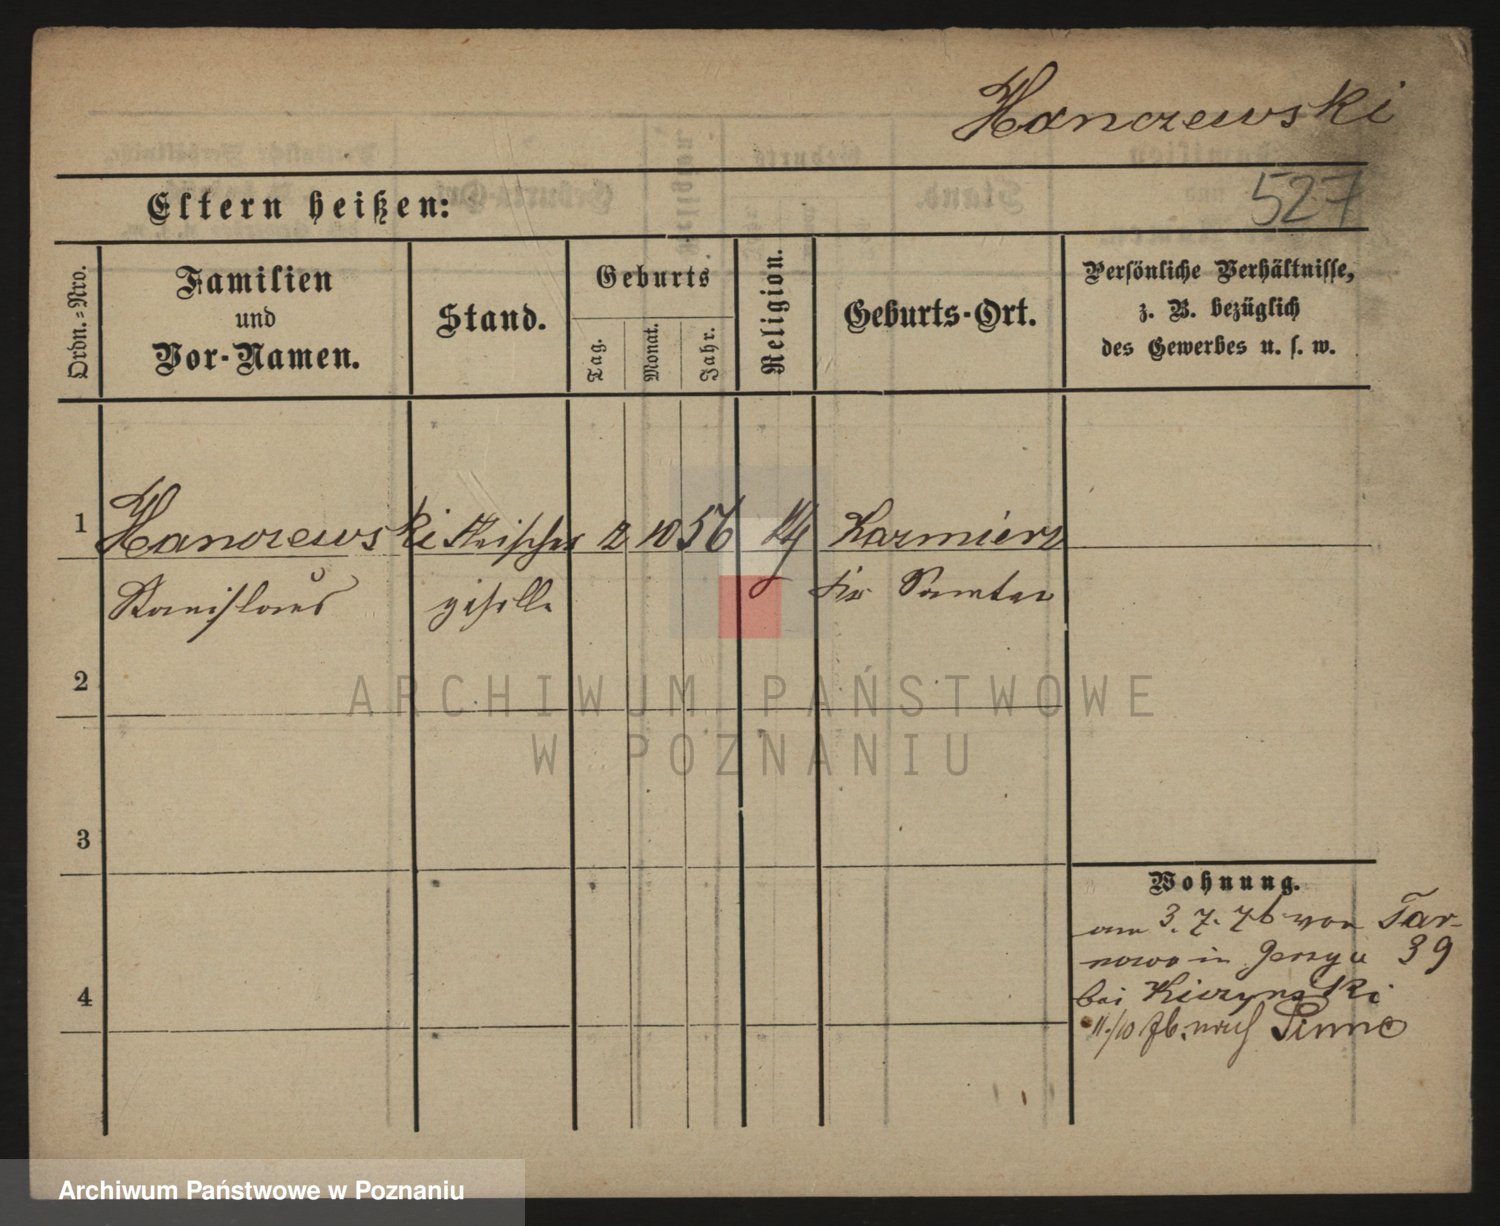 Hanczewski
527
Eltern heißen:
Ordn.-Nro.
Familien
und
Vor-Namen.
Stand.
Geburts
Tag.
Monat.
Jahr.
Religion.
Geburts-Ort.
Persönliche Verhältnisse,
z. B. bezüglich
des Gewerbes u. s. w.
1 Hanczewski 2 10 56 Kazmierz
Stanislaus geselle Samter
2
ARCHIWUM PAŃSTWOWE
W POZNANIU
3
Wohnung.
am 3. 7. 76 von Tar-
nowo in 39
4
bei
11./10 76. nach Pinne
Archiwum Państwowe w Poznaniu